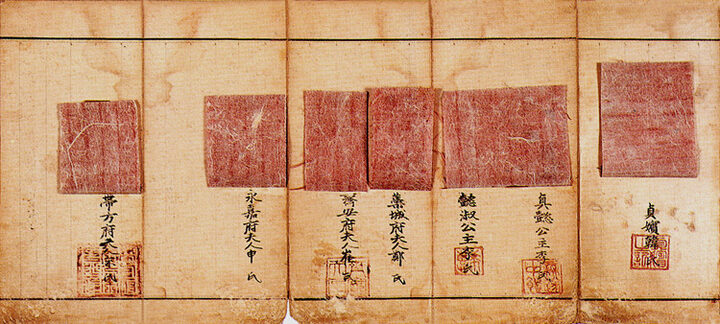 貞嬪韓氏
貞懿公主李氏
懿淑公主李氏
城府夫人鄭氏
安府夫人崔氏
永嘉府夫人申氏
帶方府夫人宋氏